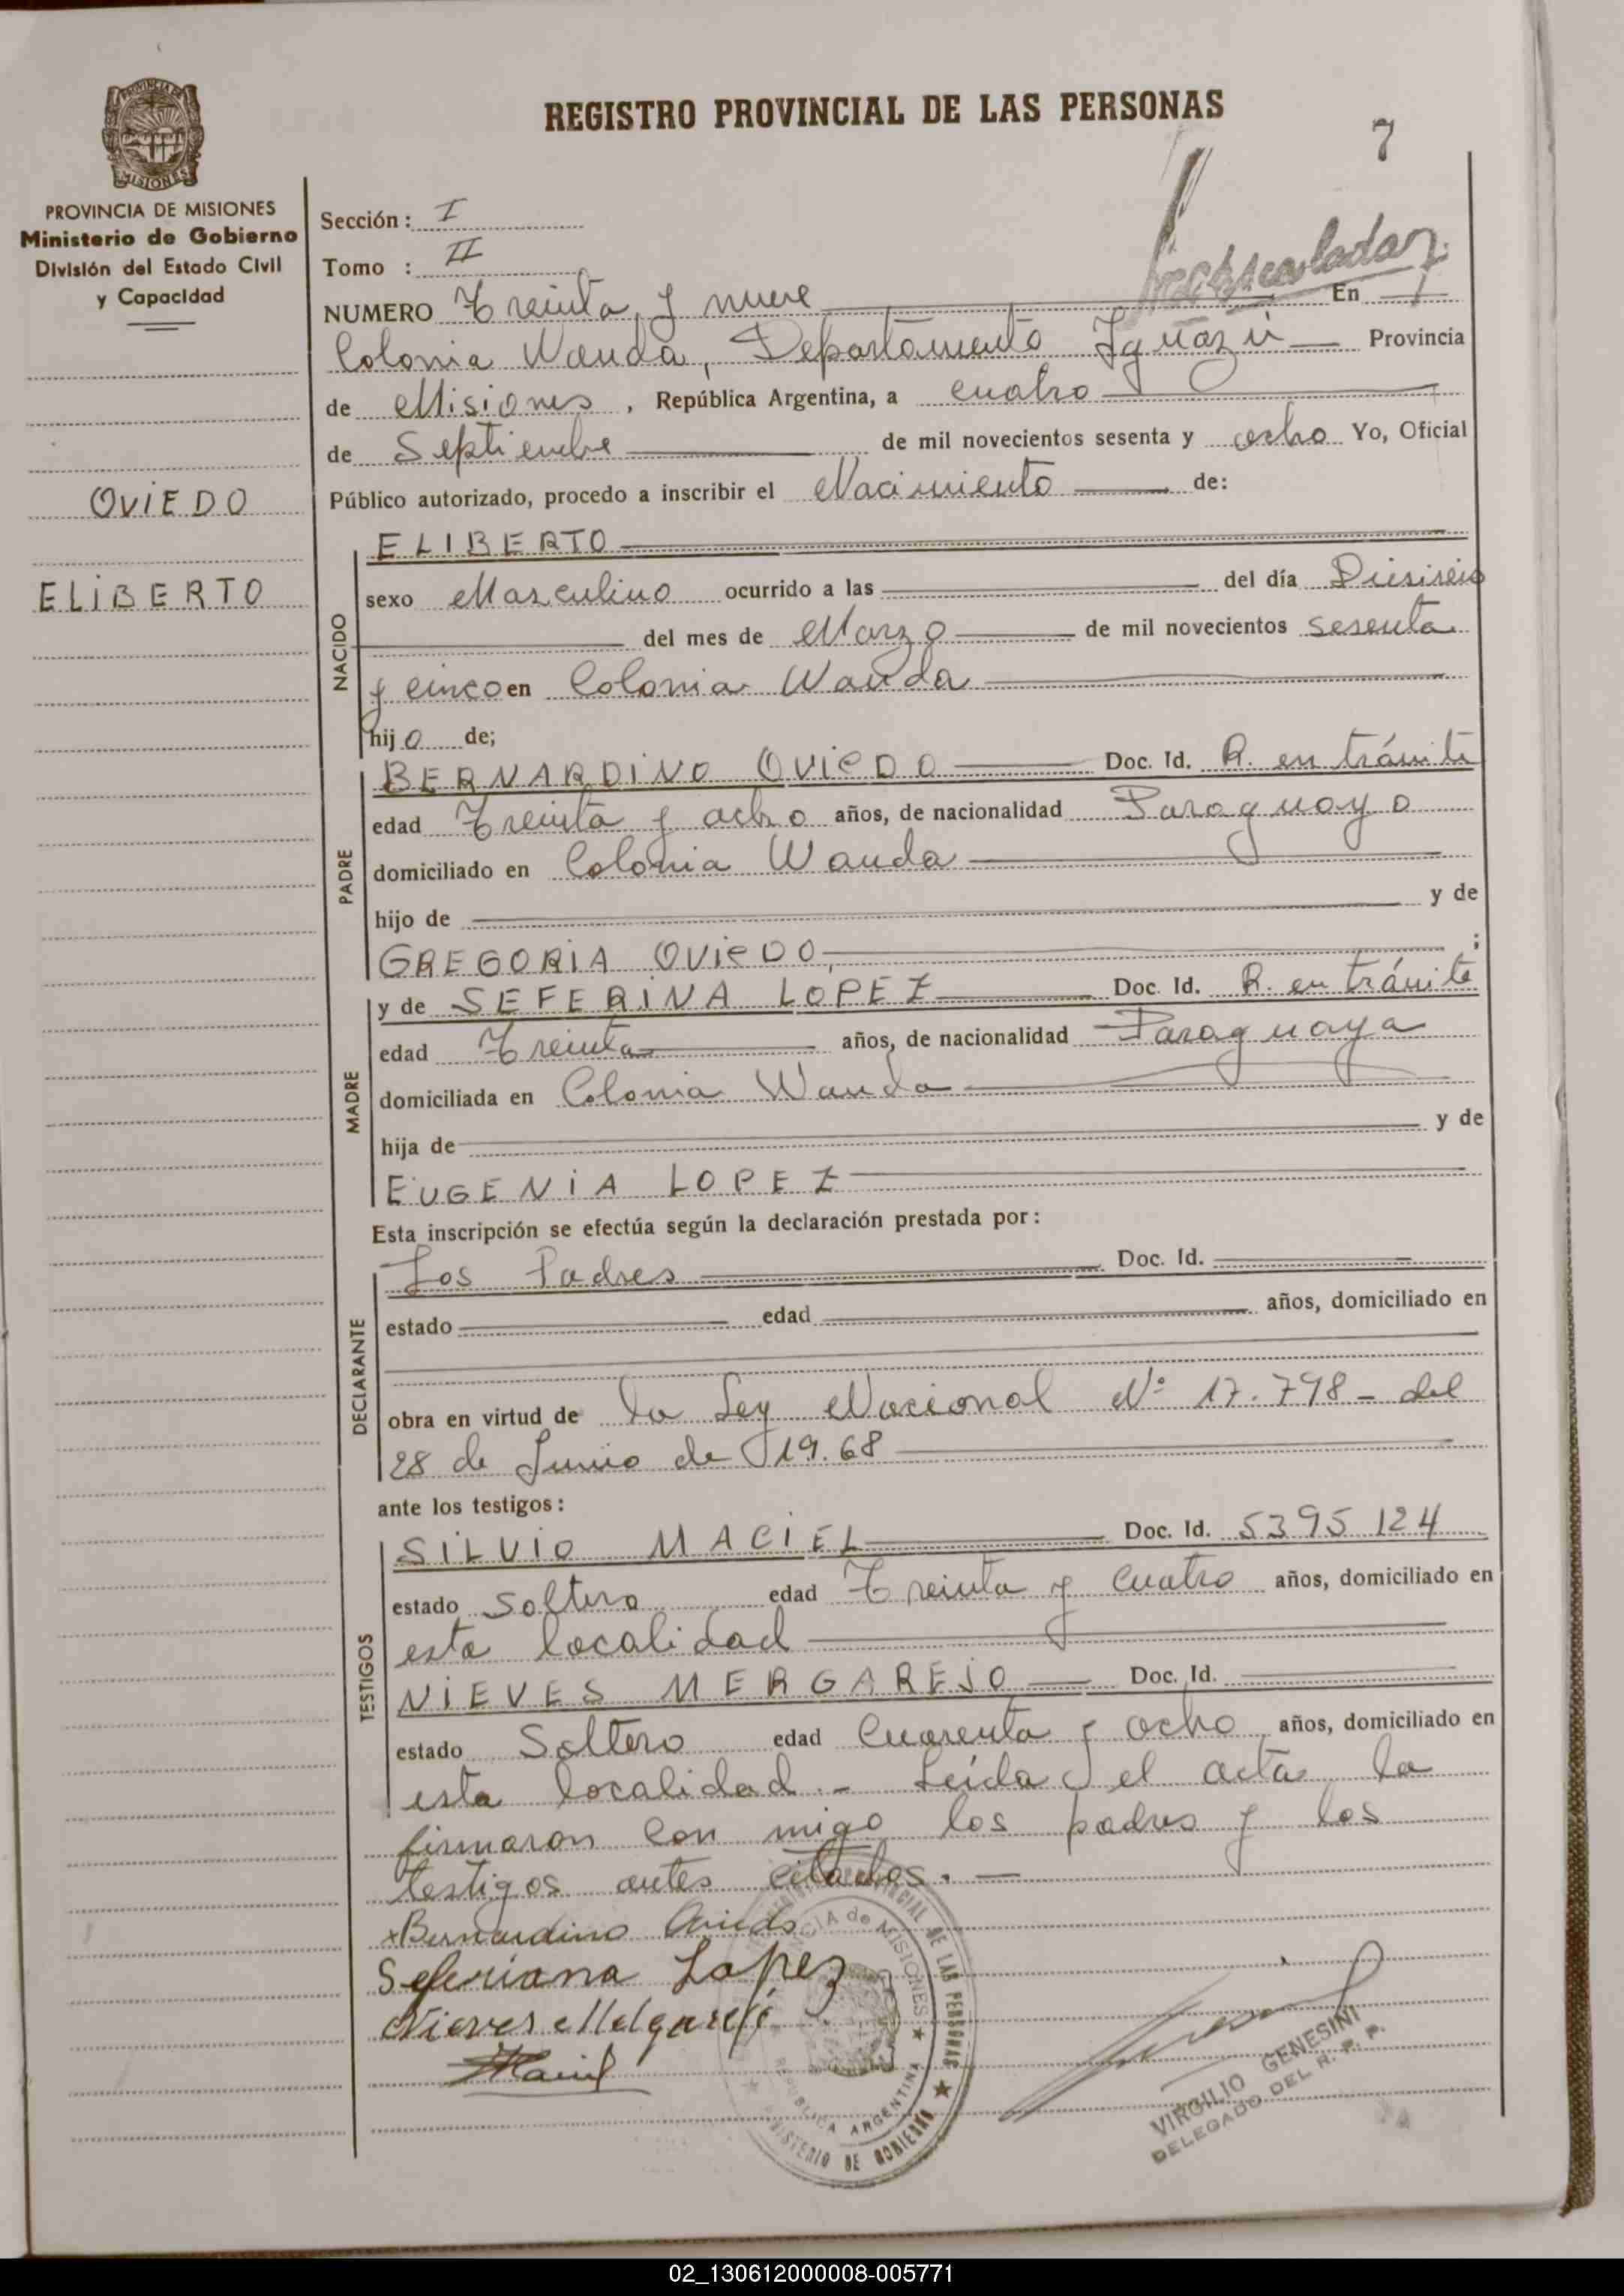 REGISTRO PROVINCIAL DE LAS PERSONAS
7
PROVINCIA DE MISIONES
PROVINCIA DE MISIONES
Ministerio de Gobierno
División del Estado Civil
y Capacidad
OVIEDO
ELIBERTO
Sección: I
Tomo : II
NUMERO Treinta y nueve En
Colonia Wanda, Departamento Iguazú Provincia
de Misiones, República Argentina, a cuatro
de Septiembre de mil novecientos sesenta y ocho Yo, Oficial
Público autorizado, procedo a inscribir el Nacimiento de:
NACIDO
ELIBERTO
sexo Masculino ocurrido a las del día Diesiseis
del mes de Marzo de mil novecientos sesenta
y cinco en Colonia Wanda
hijo de;
PADRE
BERNARDINO OVIEDO Doc. Id. R. en trámite
edad Treinta y ocho años, de nacionalidad Paraguayo
domiciliado en Colonia Wanda
hijo de y de
GREGORIA OVIEDO, ;
MADRE
y de SEFERINA LOPEZ Doc. Id. R. en trámite
edad Treinta años, de nacionalidad Paraguaya
domiciliada en Colonia Wanda
hija de y de
EUGENIA LOPEZ
Esta inscripción se efectúa según la declaración prestada por:
DECLARANTE
Los Padres Doc. Id.
estado edad años, domiciliado en
obra en virtud de la Ley Nacional Nº 17.798 - del
28 de Junio de 19.68
ante los testigos:
TESTIGOS
SILVIO MACIEL Doc. Id. 5395124
estado Soltero edad Treinta y cuatro años, domiciliado en
esta localidad
NIEVES MERGAREJO Doc. Id.
estado Soltero edad Cuarenta y ocho años, domiciliado en
esta localidad.- Leída el acta la
firmaron con migo los padres y los
testigos antes citados.-
x Bernardino Oviedo
Seferiana Lopez
Nieves Melgarejo
Maciel
PROVINCIAL DE LAS PERSONAS
MINISTERIO DE GOBIERNO
PROVINCIA de MISIONES
REPUBLICA ARGENTINA
VIRGILIO GENESINI
DELEGADO DEL R. P. P.
02_130612000008-005771